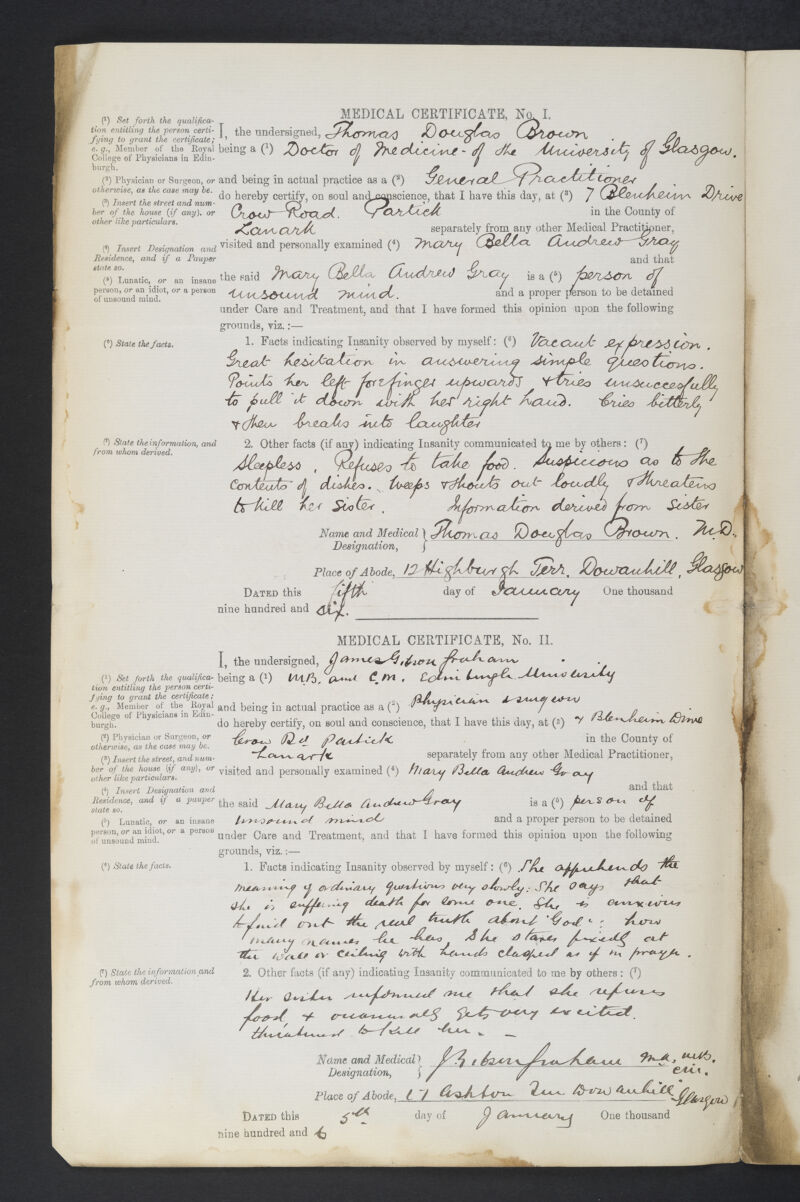 MEDICAL CERTIFICATE, No. I.
(1) Set forth the qualifica-
tion entitling the person certi-
fying to grant the certificate;
e. g., Member of the Royal
College of Physicians in Edin-
burgh.
(2) Physician or Surgeon, or
otherwise, as the case may be.
(3) Insert the street and num-
ber of the house (if any). or
other like particulars.
(4) Insert Designation and
Residence, and if a Pauper
state so.
(5) Lunatic, or an insane
person, or an idiot, or a person
of unsound mind.
I, the undersigned, Thomas Douglas Brown
being a (1) Doctor of Medicine - of the University of Glasgow.
and being in actual practice as a (2) General Practitioner
do hereby certify, on soul and conscience, that I have this day, at (3) 7 Blenheim Drive
Crow Road. Partick in the County of
Lanark separately from any other Medical Practitioner,
visited and personally examined (4) Mary Bella Andrew Gray
and that
the said Mary Bella Andrew Gray is a (5) person of
unsound mind. and a proper person to be detained
under Care and Treatment, and that I have formed this opinion upon the following
grounds, viz. :—
(6) State the facts.
1. Facts indicating Insanity observed by myself: (6) Vacant expression.
Great hesitation in answering simple questions.
Points her left forefinger upwards & tries unsuccessfully
to pull it down with her right hand. Cries bitterly
& then breaks into laughter
(7) State the information, and
from whom derived.
2. Other facts (if any) indicating Insanity communicated to me by others: (7)
Sleepless, Refuses to take food. Suspicious as to the
contents of dishes. Weeps & shouts out loudly & threatens
to kill her sister. Information derived from sister
Name and Medical Designation, Thomas Douglas Brown. M.D.
Place of Abode, 12 Highburgh Terr. Dowanhill, Glasgow
DATED this fifth day of January One thousand
nine hundred and six.
MEDICAL CERTIFICATE, No. II.
(1) Set forth the qualifica-
tion entitling the person certi-
fying to grant the certificate;
e. g., Member of the Royal
College of Physicians in Edin-
burgh.
(2) Physician or Surgeon, or
otherwise, as the case may be.
(3) Insert the street, and num-
ber of the house (if any), or
other like particulars.
(4) Insert Designation and
Residence, and if a pauper
state so.
(5) Lunatic, or an insane
person, or an idiot, or a person
of unsound mind.
I, the undersigned, James Gibson Graham
being a (1) M.B. and C.M. Edinburgh University
and being in actual practice as a (2) Physician & surgeon
do hereby certify, on soul and conscience, that I have this day, at (3) 7 Blenheim Drive
Crow Rd Partick in the County of
Lanark separately from any other Medical Practitioner,
visited and personally examined (4) Mary Bella Andrew Gray
and that
the said Mary Bella Andrew Gray is a (5) person of
unsound mind and a proper person to be detained
under Care and Treatment, and that I have formed this opinion upon the following
grounds, viz. :—
(6) State the facts.
1. Facts indicating Insanity observed by myself: (6) She apprehends the
meaning of ordinary questions very slowly: She says that
she is suffering death for some one. She is anxious
to find out the real truth about "God": how
many names he has. She stares fixedly at
the wall or ceiling with hands clasped as if in prayer.
(7) State the information, and
from whom derived.
2. Other facts (if any) indicating Insanity communicated to me by others: (7)
Her sister informed me that she refuses
food, & occasionally gets very excited.
threatened to kill her. —
Name and Medical Designation, J Gibson Graham M.A., M.B. C.M.
Place of Abode, 17 Ashton Terr Dowanhill Glasgow
DATED this 5th day of January One thousand
nine hundred and 6